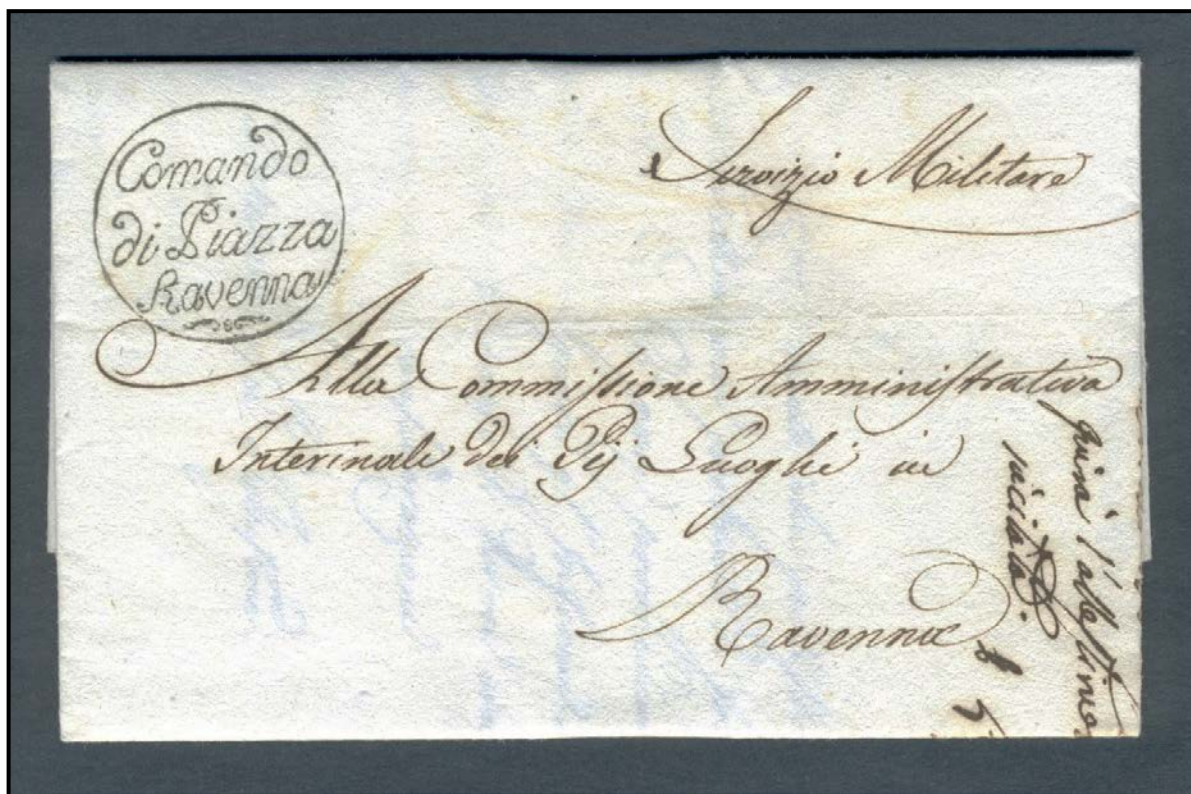 Comando
di Piazza
Ravenna
Servizio Militare
Alla Commissione Amministrativa
Interinale dei Pij Luoghi in
Ravenna